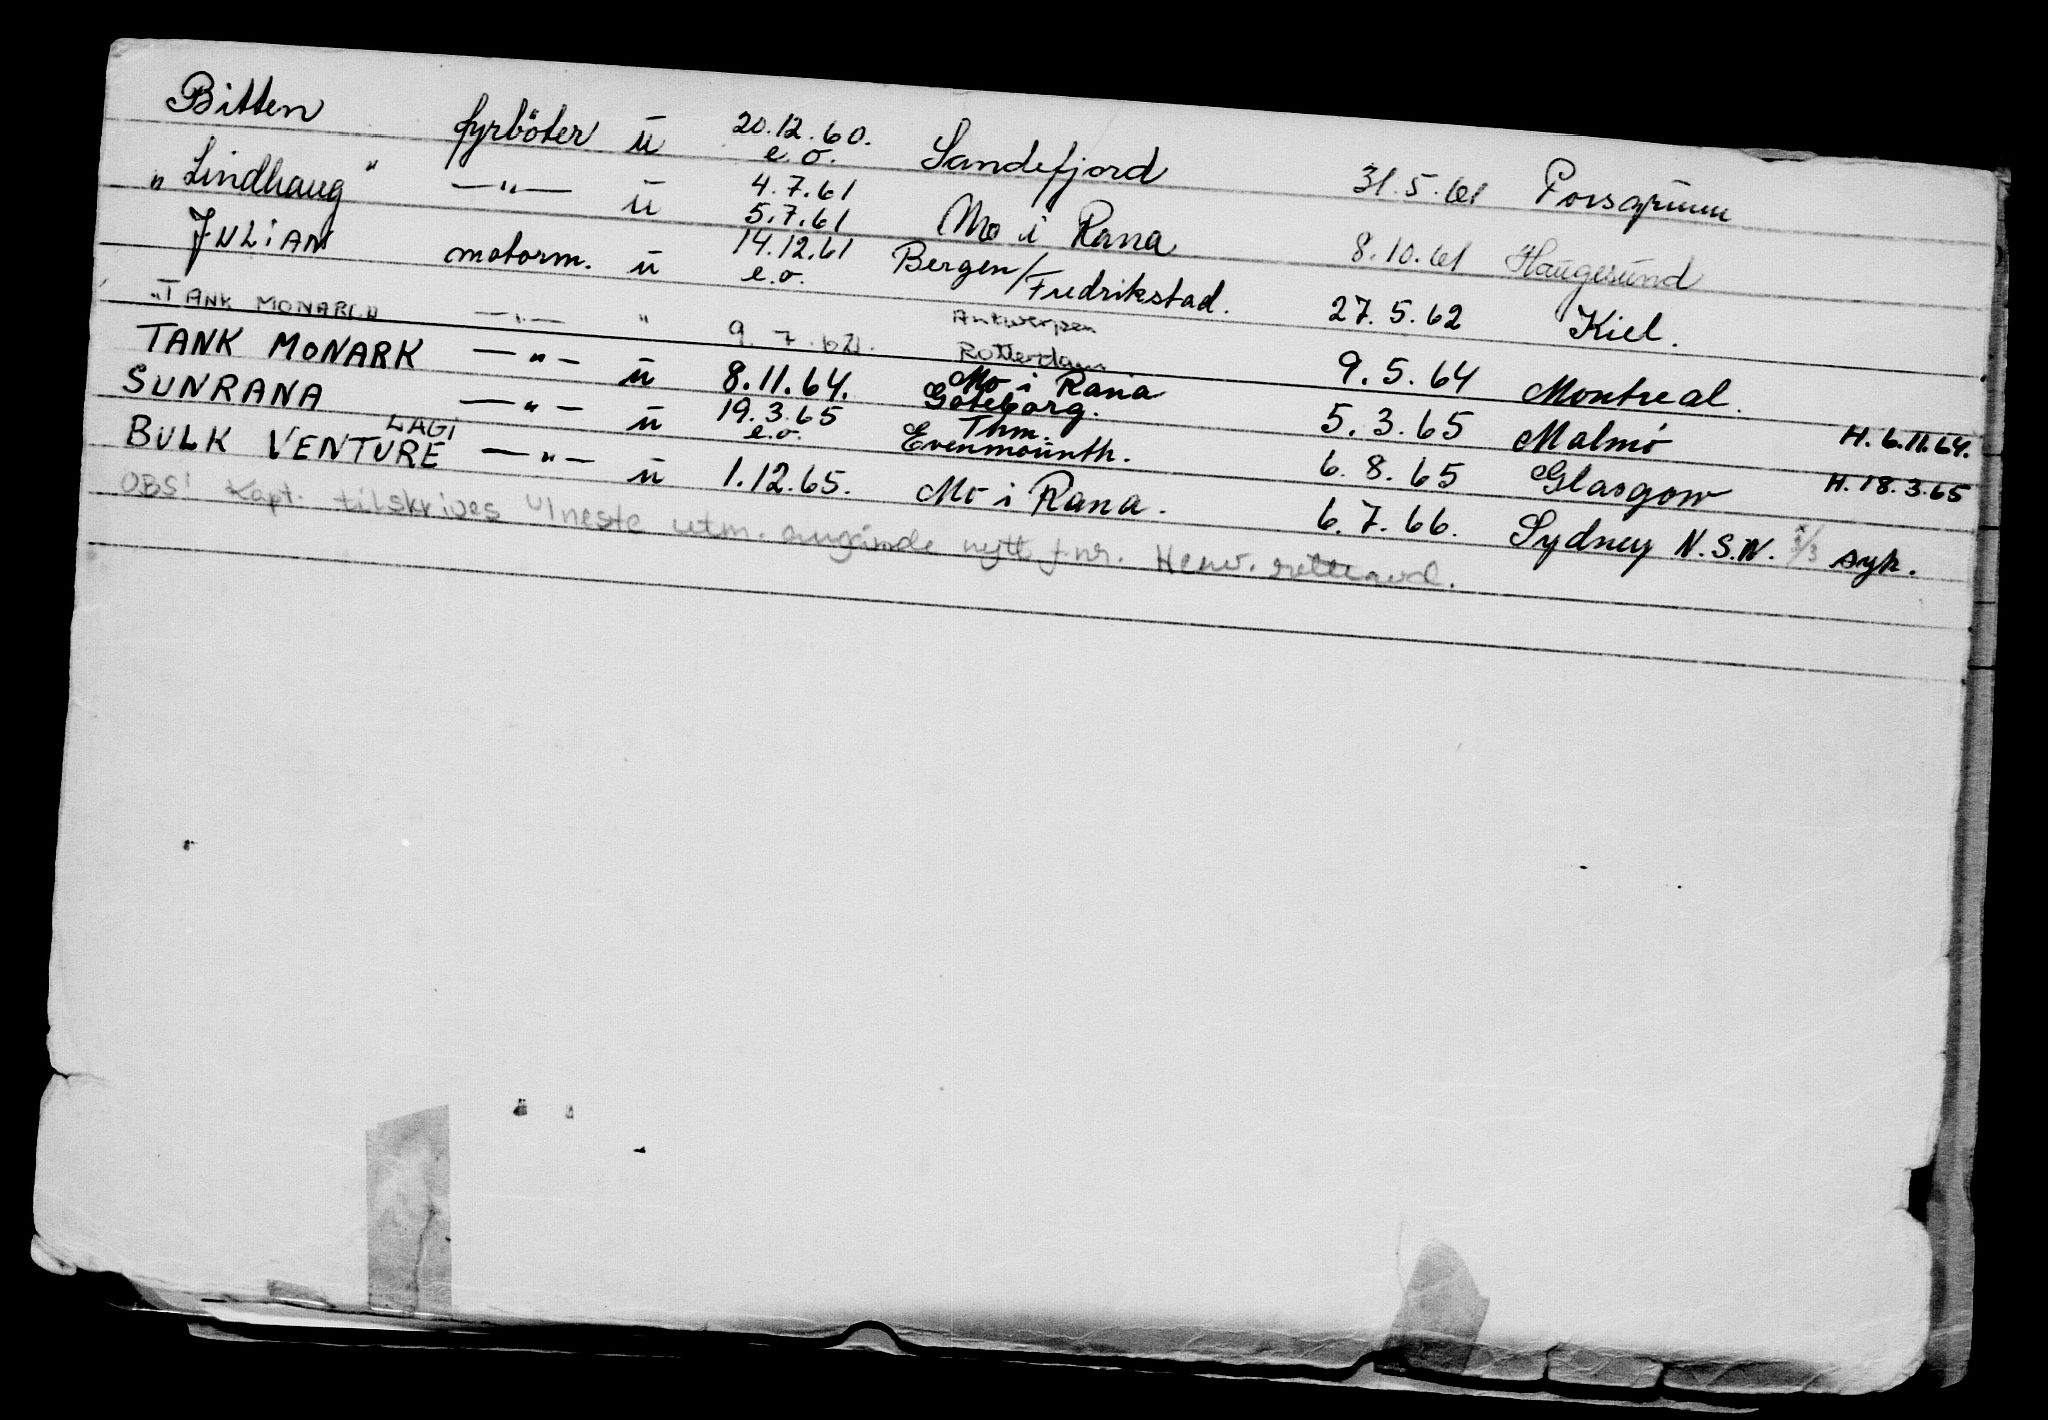 Bitten fyrböter u 20.12.60. e.o. Sandefjord 31.5.61 Porsgrunn
"Lindhaug" —"— u 4.7.61 5.7.61 Mo i Rana 8.10.61 Haugesund
JULIAN motorm. u 14.12.61 e.o. Bergen/Fredrikstad. 27.5.62 Kiel.
"TANK MONARCH —"— " 9.7.62. Antwerpen Rotterdam 9.5.64 Montreal.
TANK MONARK —"— u 8.11.64. Mo i Rana Göteborg. 5.3.65 Malmö H. 6.11.64.
SUNRANA —"— u 19.3.65 e.o. Thm. Evenmounth. 6.8.65 Glasgow H. 18.3.65
BULK VENTURE LAGI —"— u 1.12.65. Mo i Rana. 6.7.66. Sydney N.S.W. syk.
OBS! Kapt. tilskrives v/neste utm. angående nytt f.nr. Henv.